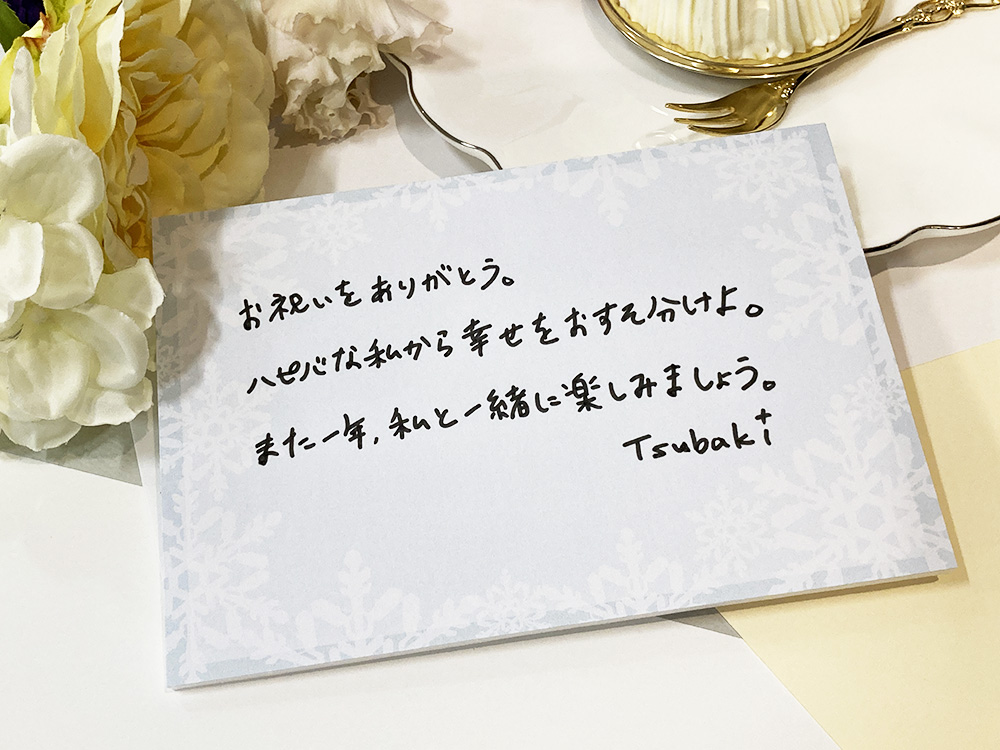 お祝いをありがとう。
ハピバな私から幸せをおすそ分けよ。
また一年,私と一緒に楽しみましょう。
Tsubaki